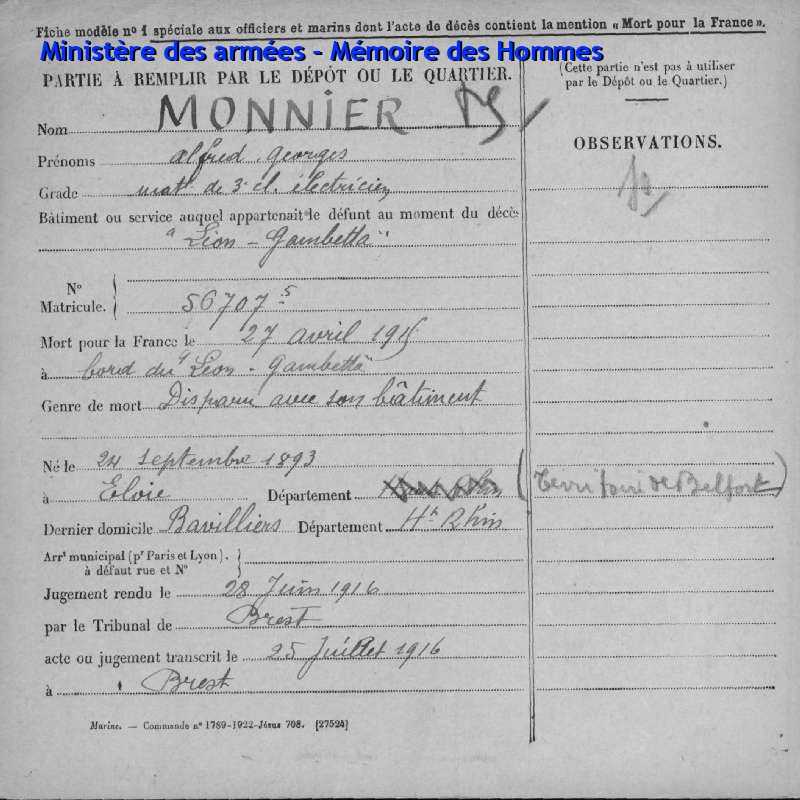 Fiche modèle nº 1 spéciale aux officiers et marins dont l'acte de décès contient la mention « Mort pour la France ».
Ministère des armées - Mémoire des Hommes
PARTIE À REMPLIR PAR LE DÉPÔT OU LE QUARTIER.
Nom MONNIER
Prénoms Alfred Georges
Grade mat. de 3e cl. électricien
Bâtiment ou service auquel appartenait le défunt au moment du décès
"Léon - Gambetta"
Nº Matricule. 56707 5
Mort pour la France le 27 avril 1915
à bord du "Léon - Gambetta"
Genre de mort Disparu avec son bâtiment
Né le 24 septembre 1893
à Eloie Département (Territoire de Belfort)
Dernier domicile Bavilliers Département Ht Rhin
Arrt municipal (pr Paris et Lyon).
à défaut rue et Nº
Jugement rendu le 28 Juin 1916
par le Tribunal de Brest
acte ou jugement transcrit le 25 Juillet 1916
à Brest
Marine. — Commande nº 1789-1922-Jésus 708. [27524]
(Cette partie n'est pas à utiliser
par le Dépôt ou le Quartier.)
OBSERVATIONS.